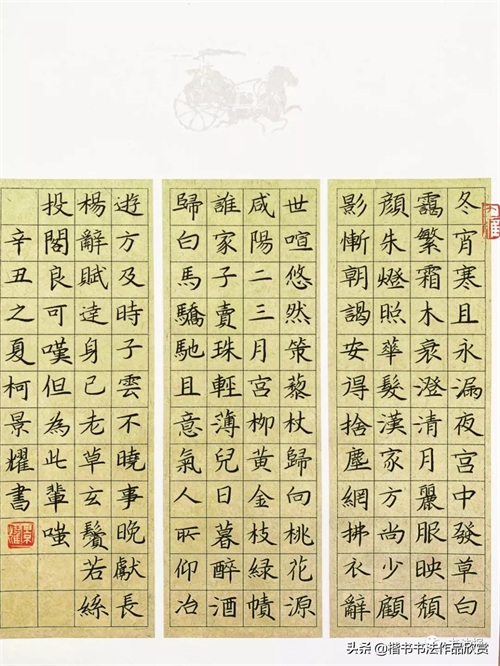 冬宵寒且永漏夜宮中發草白
靄繁霜木衰澄清月麗服映頹
顏朱燈照華髮漢家方尚少顧
影慚朝謁安得捨塵網拂衣辭
世喧悠然策藜杖歸向桃花源
咸陽二三月宮柳黃金枝綠幘
誰家子賣珠輕薄兒日暮醉酒
歸白馬驕馳且意氣人所仰冶
遊方及時子雲不曉事晚獻長
楊辭賦逹身已老草玄鬢若絲
投閣良可嘆但為此輩嗤
辛丑之夏柯景耀書
头条 @楷书书法作品欣赏